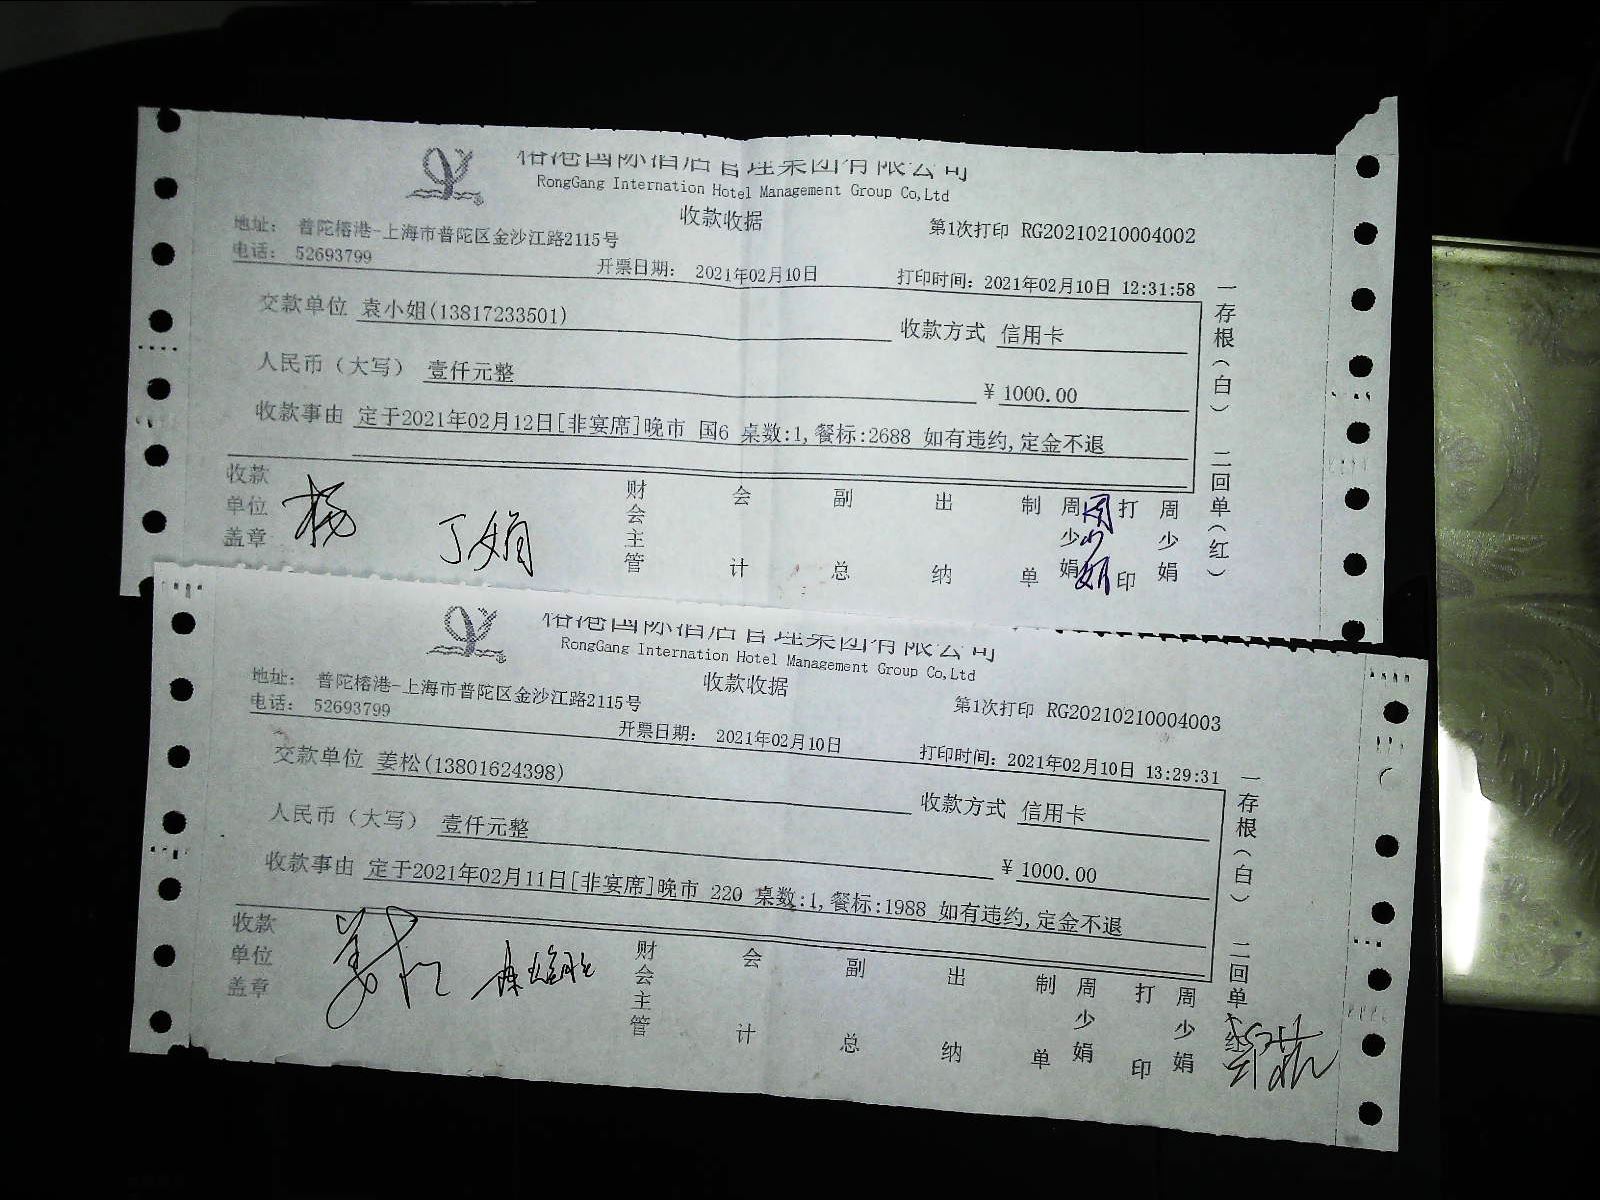 榕港国际酒店管理集团有限公司
RongGang Internation Hotel Management Group Co,Ltd
收款收据
第1次打印 RG20210210004002
地址： 普陀榕港-上海市普陀区金沙江路2115号
电话： 52693799
开票日期： 2021年02月10日
打印时间：2021年02月10日 12:31:58
交款单位 袁小姐(13817233501)
收款方式 信用卡
人民币（大写） 壹仟元整
￥1000.00
收款事由 定于2021年02月12日[非宴席]晚市 国6 桌数:1,餐标:2688 如有违约,定金不退
一存根（白） 二回单（红）
收款单位盖章
杨
丁娟
财会主管
会计
副总
出纳
制单
周少娟
周少娟
打印
周少娟
榕港国际酒店管理集团有限公司
RongGang Internation Hotel Management Group Co,Ltd
收款收据
第1次打印 RG20210210004003
地址： 普陀榕港-上海市普陀区金沙江路2115号
电话： 52693799
开票日期： 2021年02月10日
打印时间：2021年02月10日 13:29:31
交款单位 姜松(13801624398)
收款方式 信用卡
人民币（大写） 壹仟元整
￥1000.00
收款事由 定于2021年02月11日[非宴席]晚市 220 桌数:1,餐标:1988 如有违约,定金不退
一存根（白） 二回单（红
收款单位盖章
姜松
财会主管
会计
副总
出纳
制单
周少娟
打印
周少娟